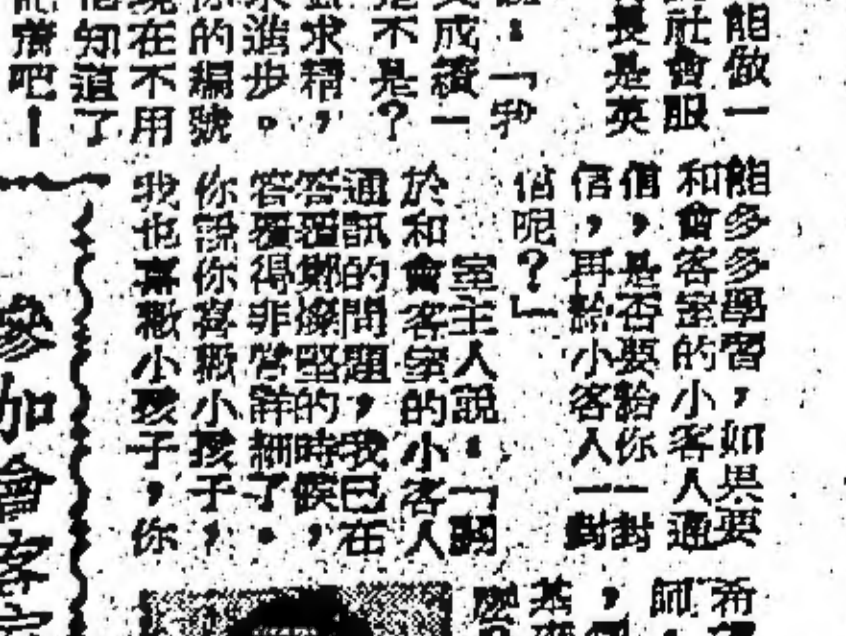 能做一
社會服
長是英
：「我
成績一
是不是？
求精，
求進步。
你的編號
現在不用
信知道了
吧！
能多多學習，如果要
和會客室的小客人通
信，是否要給你一封
信，再給小客人一封
信呢？」
室主人說：「關
於和會客室的小客人
通訊的問題，我已在
答覆鄭燦堅的時候，
答覆得非常詳細了。
你說你喜歡小孩子，
我也喜歡小孩子，你
參加會客室
希
師
，
基